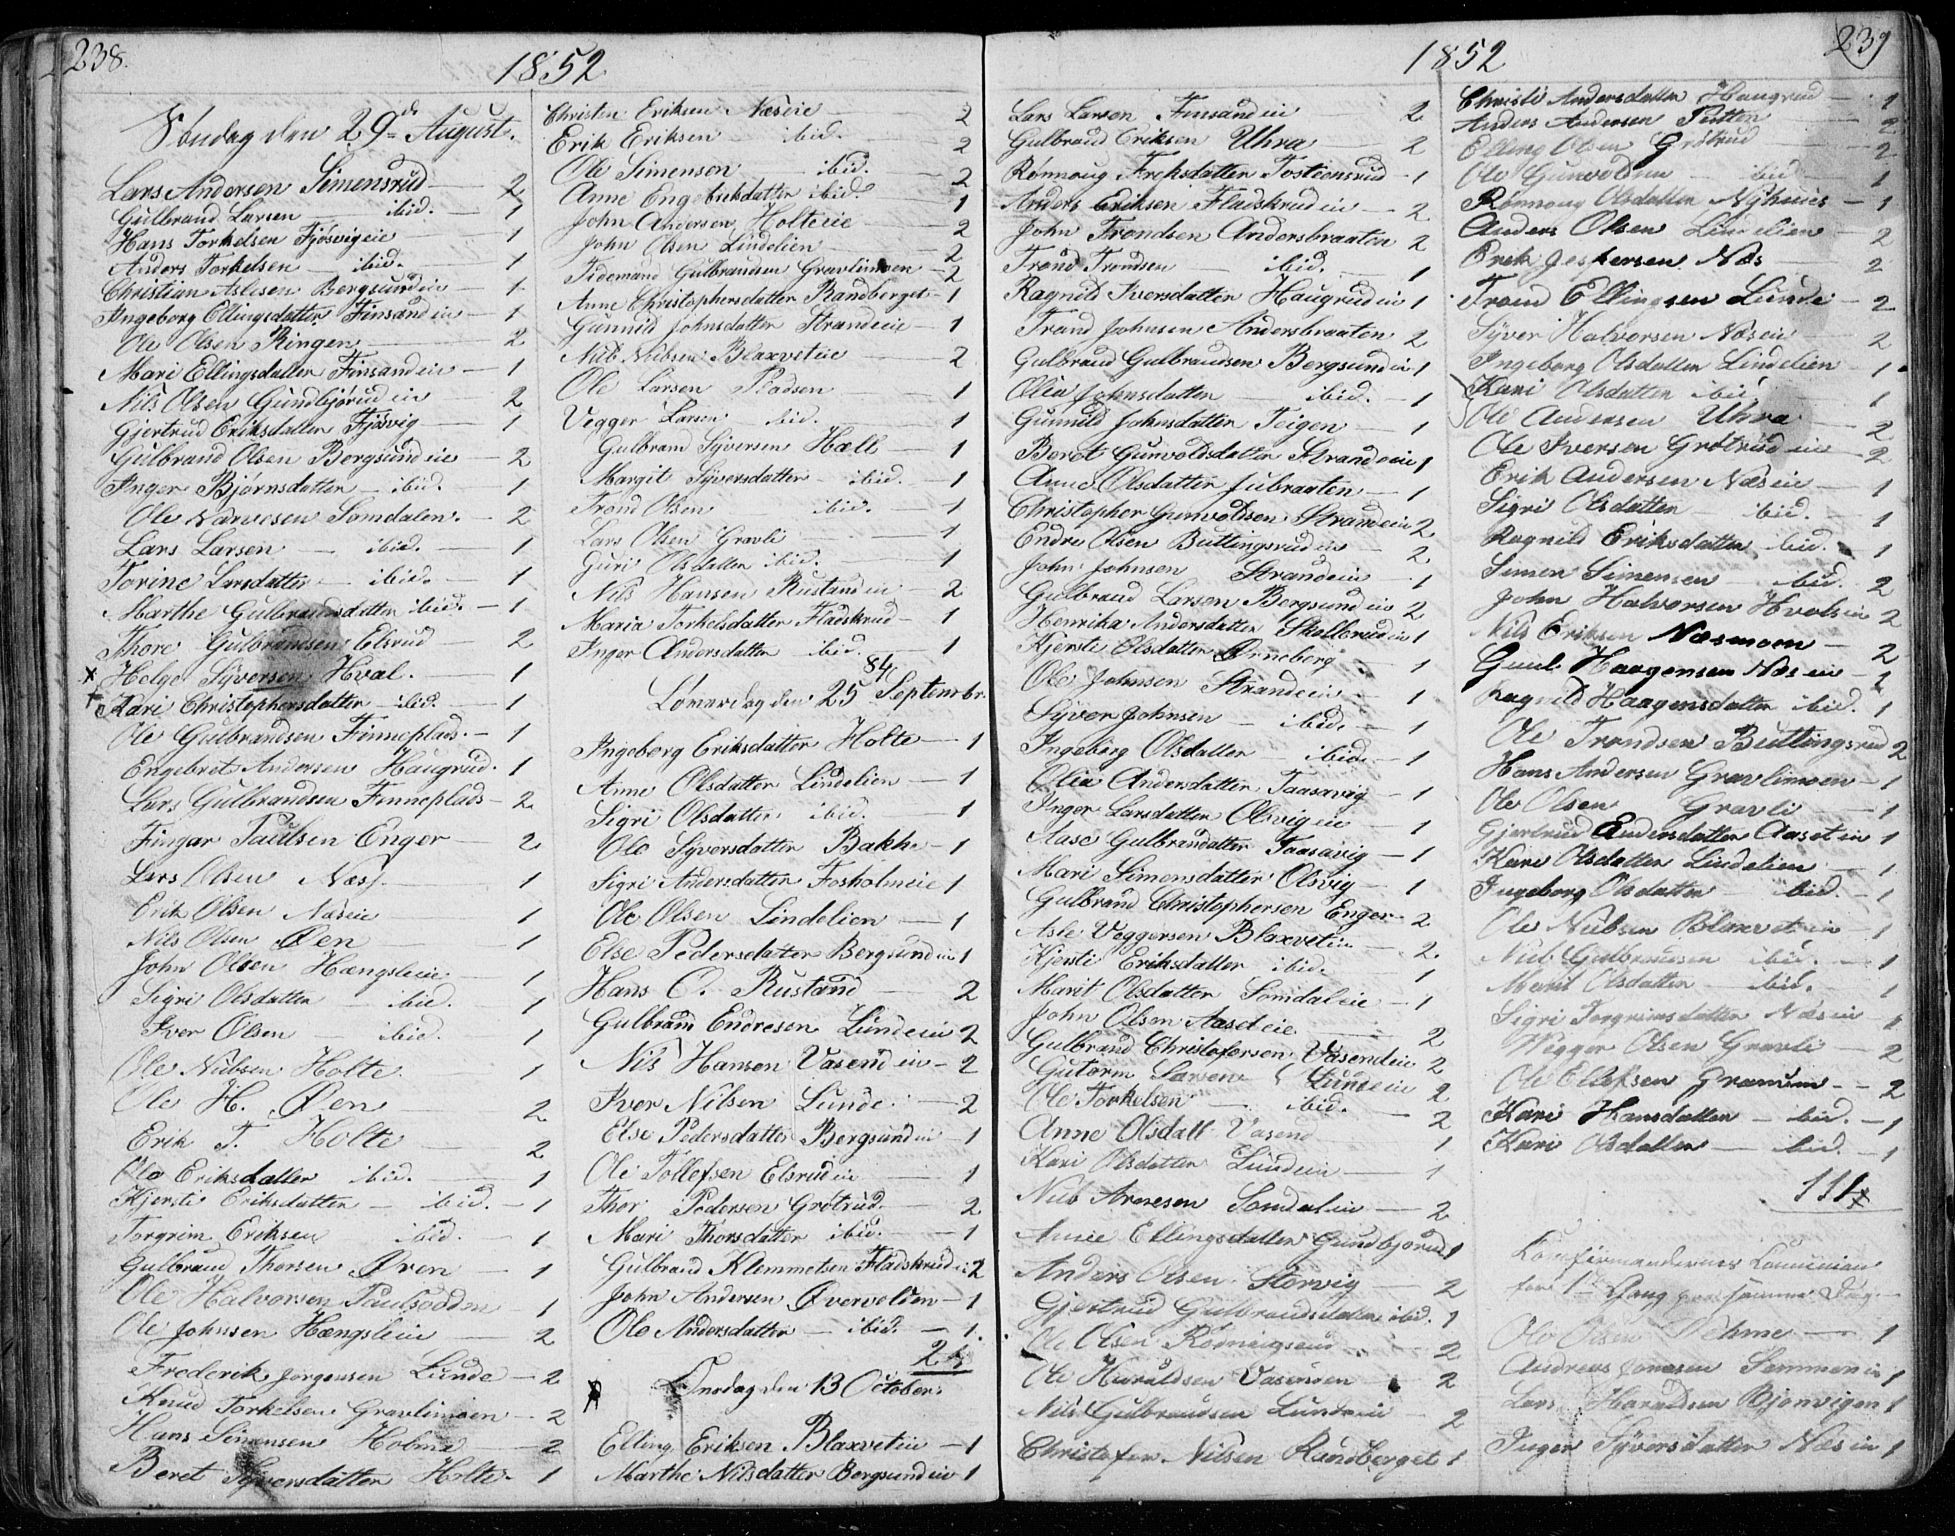 238.
1852
Søndag den 29de August.
Lars Andersen Simensrud — 2
Gulbrand Larsen — ibid. — 1
Hans Torkelsen Fjøsvigeie — 1
Anders Torkelsen — ibid. — 1
Christian Aslesen Bergsundeie — 1
Ingeborg Ellingsdatter Finsandeie — 1
Ole Olsen Ringen — 2
Mari Ellingsdatter Finsandeie — 1
Nils Olsen Gundbjørudeie — 2
Gjertrud Eriksdatter Fjøsvig — 1
Gulbrand Olsen Bergsundeie — 2
Inger Bjørnsdatter — ibid. — 1
Ole Narvesen Somdalen. — 2
Lars Larsen — ibid. — 1
Torine Larsdatter — ibid. — 1
Marthe Gulbrandsdatter ibid. — 1
Thore Gulbrandsen Elsrud — 2
x Helge Syversen Hval. — 1
+ Kari Christophersdatter — ibid. — 1
Ole Gulbrandsen Finneplads. — 1
Engebret Andersen Haugrud. 1
Lars Gulbrandsen Finneplads — 2
Fingar Paulsen Enger — 2
Lars Olsen Næs — 1
Erik Olsen Næseie 1
Nils Olsen Øen 1
John Olsen Hængsleeie 1
Sigri Olsdatter ibid. 1
Iver Olsen — ibid. 1
Ole Nielsen Holte 1
Ole H. Øen 2
Erik T. Holte 2
Olo Eriksdatter ibid. 1
Kjersti Eriksdatter — ibid. — 1
Torgrim Eriksen ibid. 1
Gulbrand Thorsen Øren — 1
Ole Halvorsen Paulsødden 1
Ole Johnsen Hængsleeie 2
Frederik Jørgensen Lunde — 2
Knud Torkelsen Gravlimoen — 2
Hans Simensen Holme — 2
Beret Syversdatter Holte. — 1
Christen Eriksen Næseie — 2
Erik Eriksen — ibid. — 2
Ole Simensen — ibid. — 2
Anne Engebrihsdatter ibid. 1
John Andersen Holteeie 2
John Olsen Lindelien 2
Tidemand Gulbrandsen Gravlimoen — 2
Anne Christophersdatter Randberget — 1
Gunnild Johnsdatter Strandeie — 1
Niels Nielsen Blaxveteie — 2
Ole Larsen Pladsen 1
Vegger Larsen ibid. 1
Gulbrand Syversen Hæll — 1
Margit Syversdatter — ibid. — 1
Trond Olsen ibid. 1
Lars Olsen Gravli 1
Guri Olsdatter ibid. — 1
Nils Hansen Rustandeie — 2
Maria Torkelsdatter Fladskrud — 1
Inger Andersdatter ibid. 1
84
Lømardag den 25 Septembr.
Ingeborg Eriksdatter Holte — 1
Anne Olsdatter Lindelien — 1
Sigri Olsdatter ibid. — 1
Olo Syversdatter Bakke — 1
Sigri Andersdatter Fosholmeie 1
Ole Olsen Lindelien — 1
Else Pedersdatter Bergsundeie 1
Hans C. Rustand — 2
Gulbrand Endresen Lundeeie 2
Nils Hansen Vasendeie — 2
Iver Nilsen Lunde. — 2
Else Pedersdatter Bergsundeie — 1
Ole Tollefsen Elsrudeie — 1
Thor Pedersen Grøtrud. — 2
Mari Thorsdatter ibid. — 1
Gulbrand Klemmetsen Fladskrudeie 2
John Andersen Øvervolden — 1
Olo Andersdatter — ibid. — 1.
24
Onsdag den 13 October.
Elling Eriksen Blaxveteie — 1
Marthe Nilsdatter Bergsundeie 1
1852
239
Lars Larsen Finsandeie 2
Gulbrand Eriksen Uhra — 2
Rønnoug Eriksdatter Tostensrud — 1
Anders Eriksen Fladskrudeie — 2
John Trondsen Andersbraaten 2
Trond Trondsen — ibid. 1
Ragnild Iversdatter Haugrudeie 1
Trond Johnsen Andersbraaten 2
Gulbrand Gulbrandsen Bergsundeie 1
Olia Johnsdatter — ibid. — 1
Gunnild Johnsdatter Teigen — 1
Beret Gunvoldsdatter Strandeie 1
Anne Olsdatter Jubraaten — 1
Christopher Gunvoldsen Strandeie 2
Endre Olsen Buttingsrudeie — 2
John Johnsen Strandeie — 1
Gulbrand Larsen Bergsundeie 2
Henrika Andersdatter Skollerudeie 1
Kjersti Olsdatter Ørneberg — 1
Ole Johnsen Strandeie — 1
Syver Johnsen — ibid. — 1
Ingeborg Olsdatter — ibid. — 1
Olia Andersdatter Taasavig — 1
Inger Larsdatter Olsvigeie — 1
Aase Gulbrandsdatter Taasavig — 1
Mari Simensdatter Olsvig — 1
Gulbrand Christophersen Enger — 2
Asle Veggersen Blaxveteie — 2.
Kjersti Eriksdatter ibid. 1
Marit Olsdatter Somdaleie — 1
John Olsen Aaseteie 2
Gulbrand Christofersen Vasendeie 2
Gutorm Larsen Lundeeie 2
Ole Torkelsen — ibid. — 2
Anne Olsdatt Vasend 1
Kari Olsdatter Lundeie — 1
Niels Arnesen Somdaleie — 2
Anne Ellingsdatter Gundbjørud 1
Anders Olsen Storvig — 2
Gjertrud Gulbrandsdatter ibid. 1
Ole Olsen 2
Ole Haraldsen Vasenden 2
Nils Gulbrandsen Lundeeie 2
Christofer Nilsen Randberget 1
Christi Andersdatter Haugrud — 1
Anders Andersen Putten 2
Elling Olsen Grøtrud — 2
Ole Gunvoldsen — ibid. — 1
Rønnoug Olsdatter Nyhuus — 1
Anders Olsen Lindelien — 2
Erik Jespersen Næs 2
Trond Ellingsen Lunde — 2
Syver Halvorsen Næseie — 2
Ingeborg Olsdatter Lindelien — 1
Kari Olsdatter ibid. 1
Ole Andersen Uhra 2
Ole Iversen Grøtrudeie — 2
Erik Andersen Næseie — 1
Sigri Olsdatter — ibid. — 1
Ragnild Eriksdatter ibid. — 1
Simen Simensen — ibid. 2
John Halvorsen Hvaleie 2
Nils Eriksen Næsmoen — 2
Gunl. Haagensen Næseie — 2
Ragnild Haagensdatter ibid. 1
Ole Trondsen Buttingsrud 2
Hans Andersen Gravlimoen — 1
Ole Olsen Gravli — 1
Gjertrud Andersdatter Aaseteie 1
Kari Olsdatter Lindelien — 1
Ingeborg Olsdatter — ibid. — 1
Ole Nielsen Blaxveteie — 1
Niels Gulbrandsen ibid. — 1
Marit Olsdatter — ibid. 1
Sigri Torgrimsdatter Næseie — 1
Wegger Olsen Gravli — 2
Ole Ellefsen Gramum — 2
Kari Hansdatter — ibid. — 1
Kari Olsdatter — ibid. — 1
114
Konfirmandernes Communion
for 1ste Gang paa samme Dag.
Olo Olsen Dehme — 1
Andreas Jonasen Semmeneie 1
Lars Haraldsen Bjonvigen 1
Inger Syversdatter Næseie 1